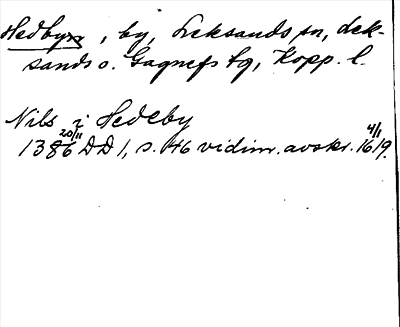 Hedbyn, by, Leksands sn, Lek-
sands o. Gagnefs tg, Kopp. l.
Nils i Hedeby
20/11 4/1
1386 DD 1, s. 46 vidim. avskr. 1619.